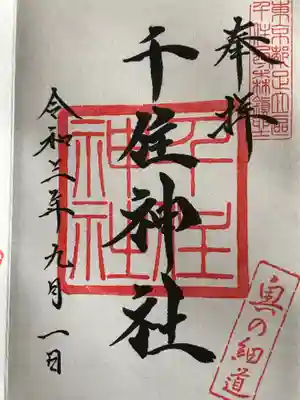 東京都足立区
奉拝
奥の細道
千住神社
千住
神社
令和三年九月一日